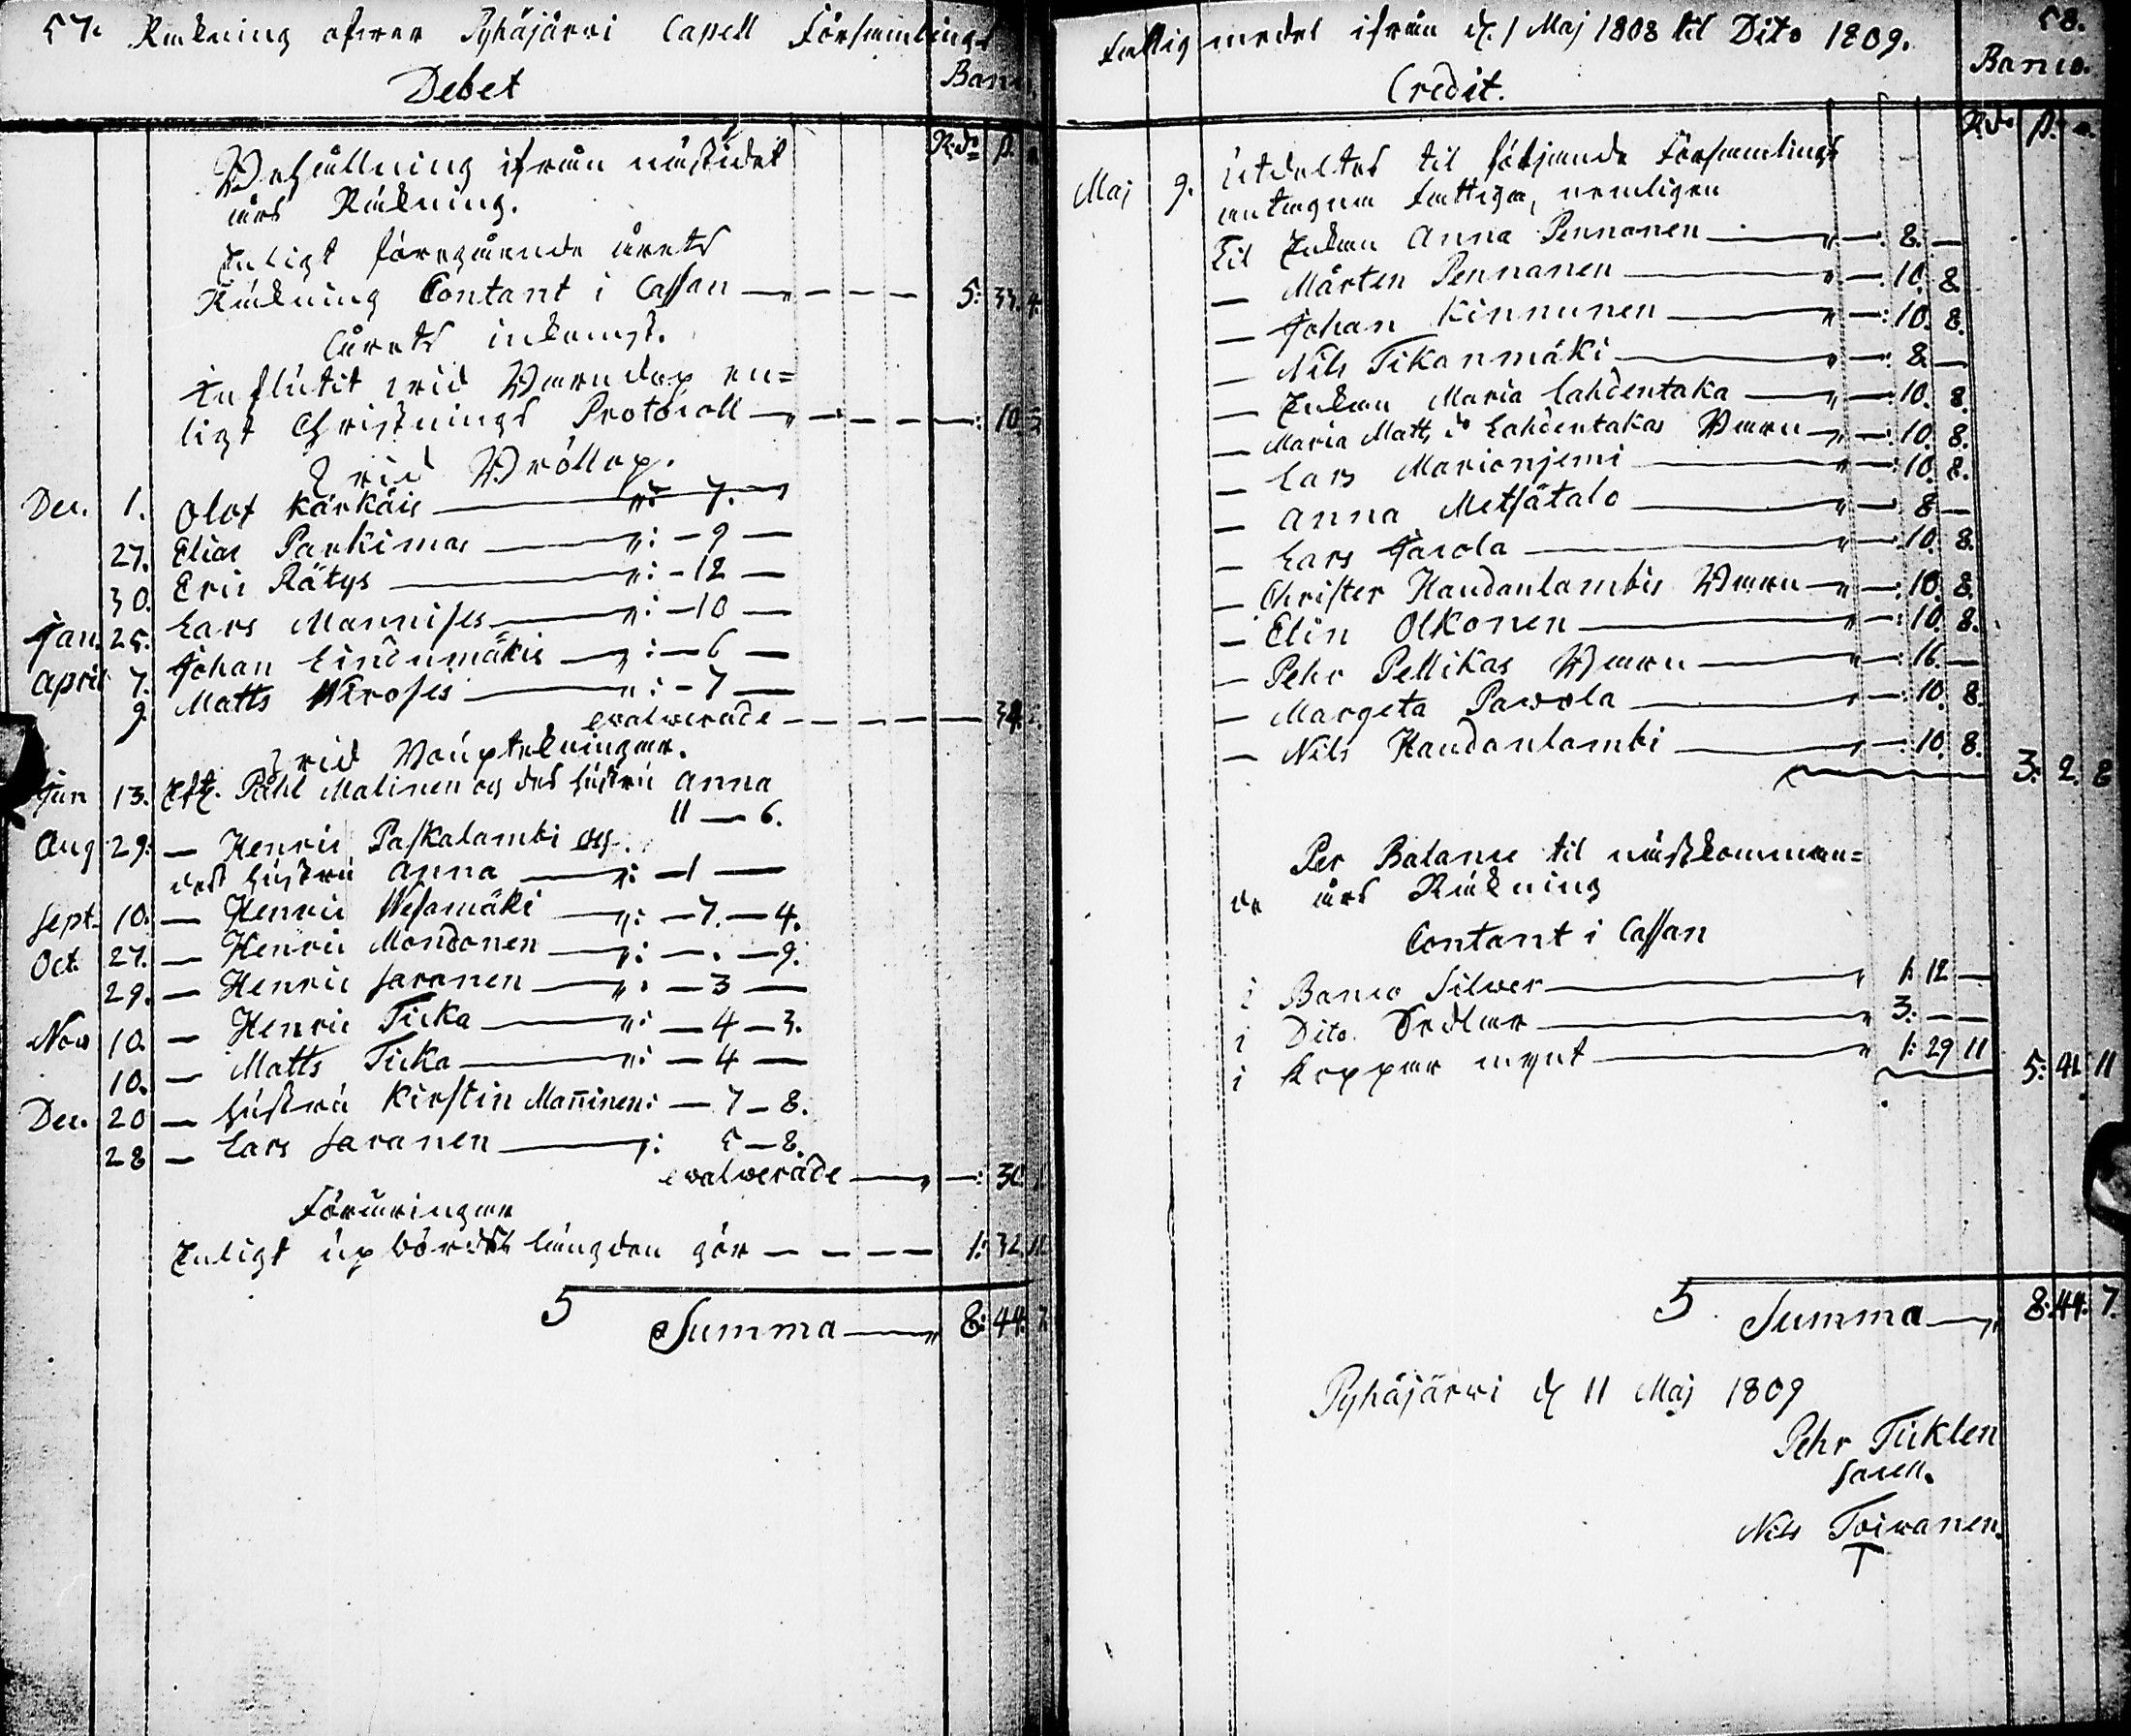 57. Räkning öfwer Pyhäjärwi Capell Församlings
Debet
Banco.
Rd. ß. r.
Behållning ifrån nästledet
års Räkning.
Enligt föregående årets
Räkning Contant i Cassan — 5: 33. 4.
Årets inkomst.
Influtit wid Barndop en=
ligt Christnings Protocoll — 10. 3
Wid Bröllop.
Dec. 1. Olof Kärkäis — 7. —
27. Elias Parkimas — 9 —
30. Eric Rätys — 12 —
Jan. 25. Lars Mannises — 10 —
April 7. Johan Lindumäkis — 6 —
9. Matts Wirosis — 7 —
evalverade — 34.
Wid Bouptekningar.
Jun 13. Eft. Påhl Malinen och des hustru Anna
11 — 6.
Aug 29. — Henric Paskalambi och
dess hustru Anna — 1 —
Sept. 10. — Henric Wesamäki — 7. — 4.
Oct. 27. — Henric Mondonen — . — 9.
29. — Henric Saranen — 3 —
Nov 10. — Henric Ticka — 4 — 3.
10. — Matts Ticka — 4 —
Dec. 20 — hustru Kirstin Mañinen: — 7 — 8.
28 — Lars Saranen — 5 — 8.
evalverade — 30.
Föräringar
Enligt upbörds längden gör — 1: 32. 11.
Summa — 8: 44. 7.
Fattig medel ifrån d. 1 Maj 1808 til Dito 1809.
58.
Credit.
Banco.
Rd. ß. r.
Maj 9. Utdeltes til följande Församlings
antagna Fattiga, nemligen
Til Enkan Anna Pennanen — 8. —
— Mårten Pennanen — 10. 8.
— Johan Kinnunen — 10. 8.
— Nils Tikanmäki — 8. —
— Enkan Maria Lahdentaka — 10. 8.
— Maria Matts dr Lahdentakas Barn — 10. 8.
— Lars Marionjemi — 10. 8.
— Anna Metsätalo — 8 —
— Lars Jacola — 10. 8.
— Christer Haudanlambis Barn — 10. 8.
— Elin Olkonen — 10. 8.
— Pehr Pellikas Barn — 16. —
— Margeta Pawola — 10. 8.
— Nils Haudanlambi — 10. 8.
3. 2. 8
Per Balance til nästkomman=
de års Räkning
Contant i Cassan
i Banco Silwer — 1: 12 —
i Dito Sedlar — 3. — —
i Koppar mynt — 1: 29 11
5: 41 11
Summa — 8: 44. 7.
Pyhäjärwi d. 11 Maj 1809
Pehr Ticklen
Sacell.
Nils Toiwanen.
T